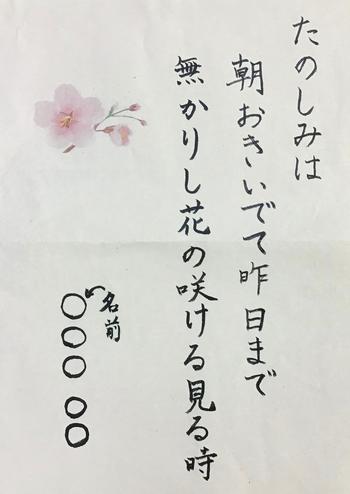 たのしみは
朝おきいでて昨日まで
無かりし花の咲ける見る時
名前
〇〇〇〇〇